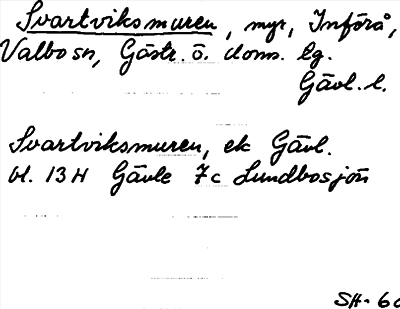 Svartviksmuren, myr, Införå,
Valbo sn, Gästr. ö. doms. lg.
Gävl. l.
Svartviksmuren, ek Gävl.
bl. 13 H Gävle 7c Lundbosjön
SH-60